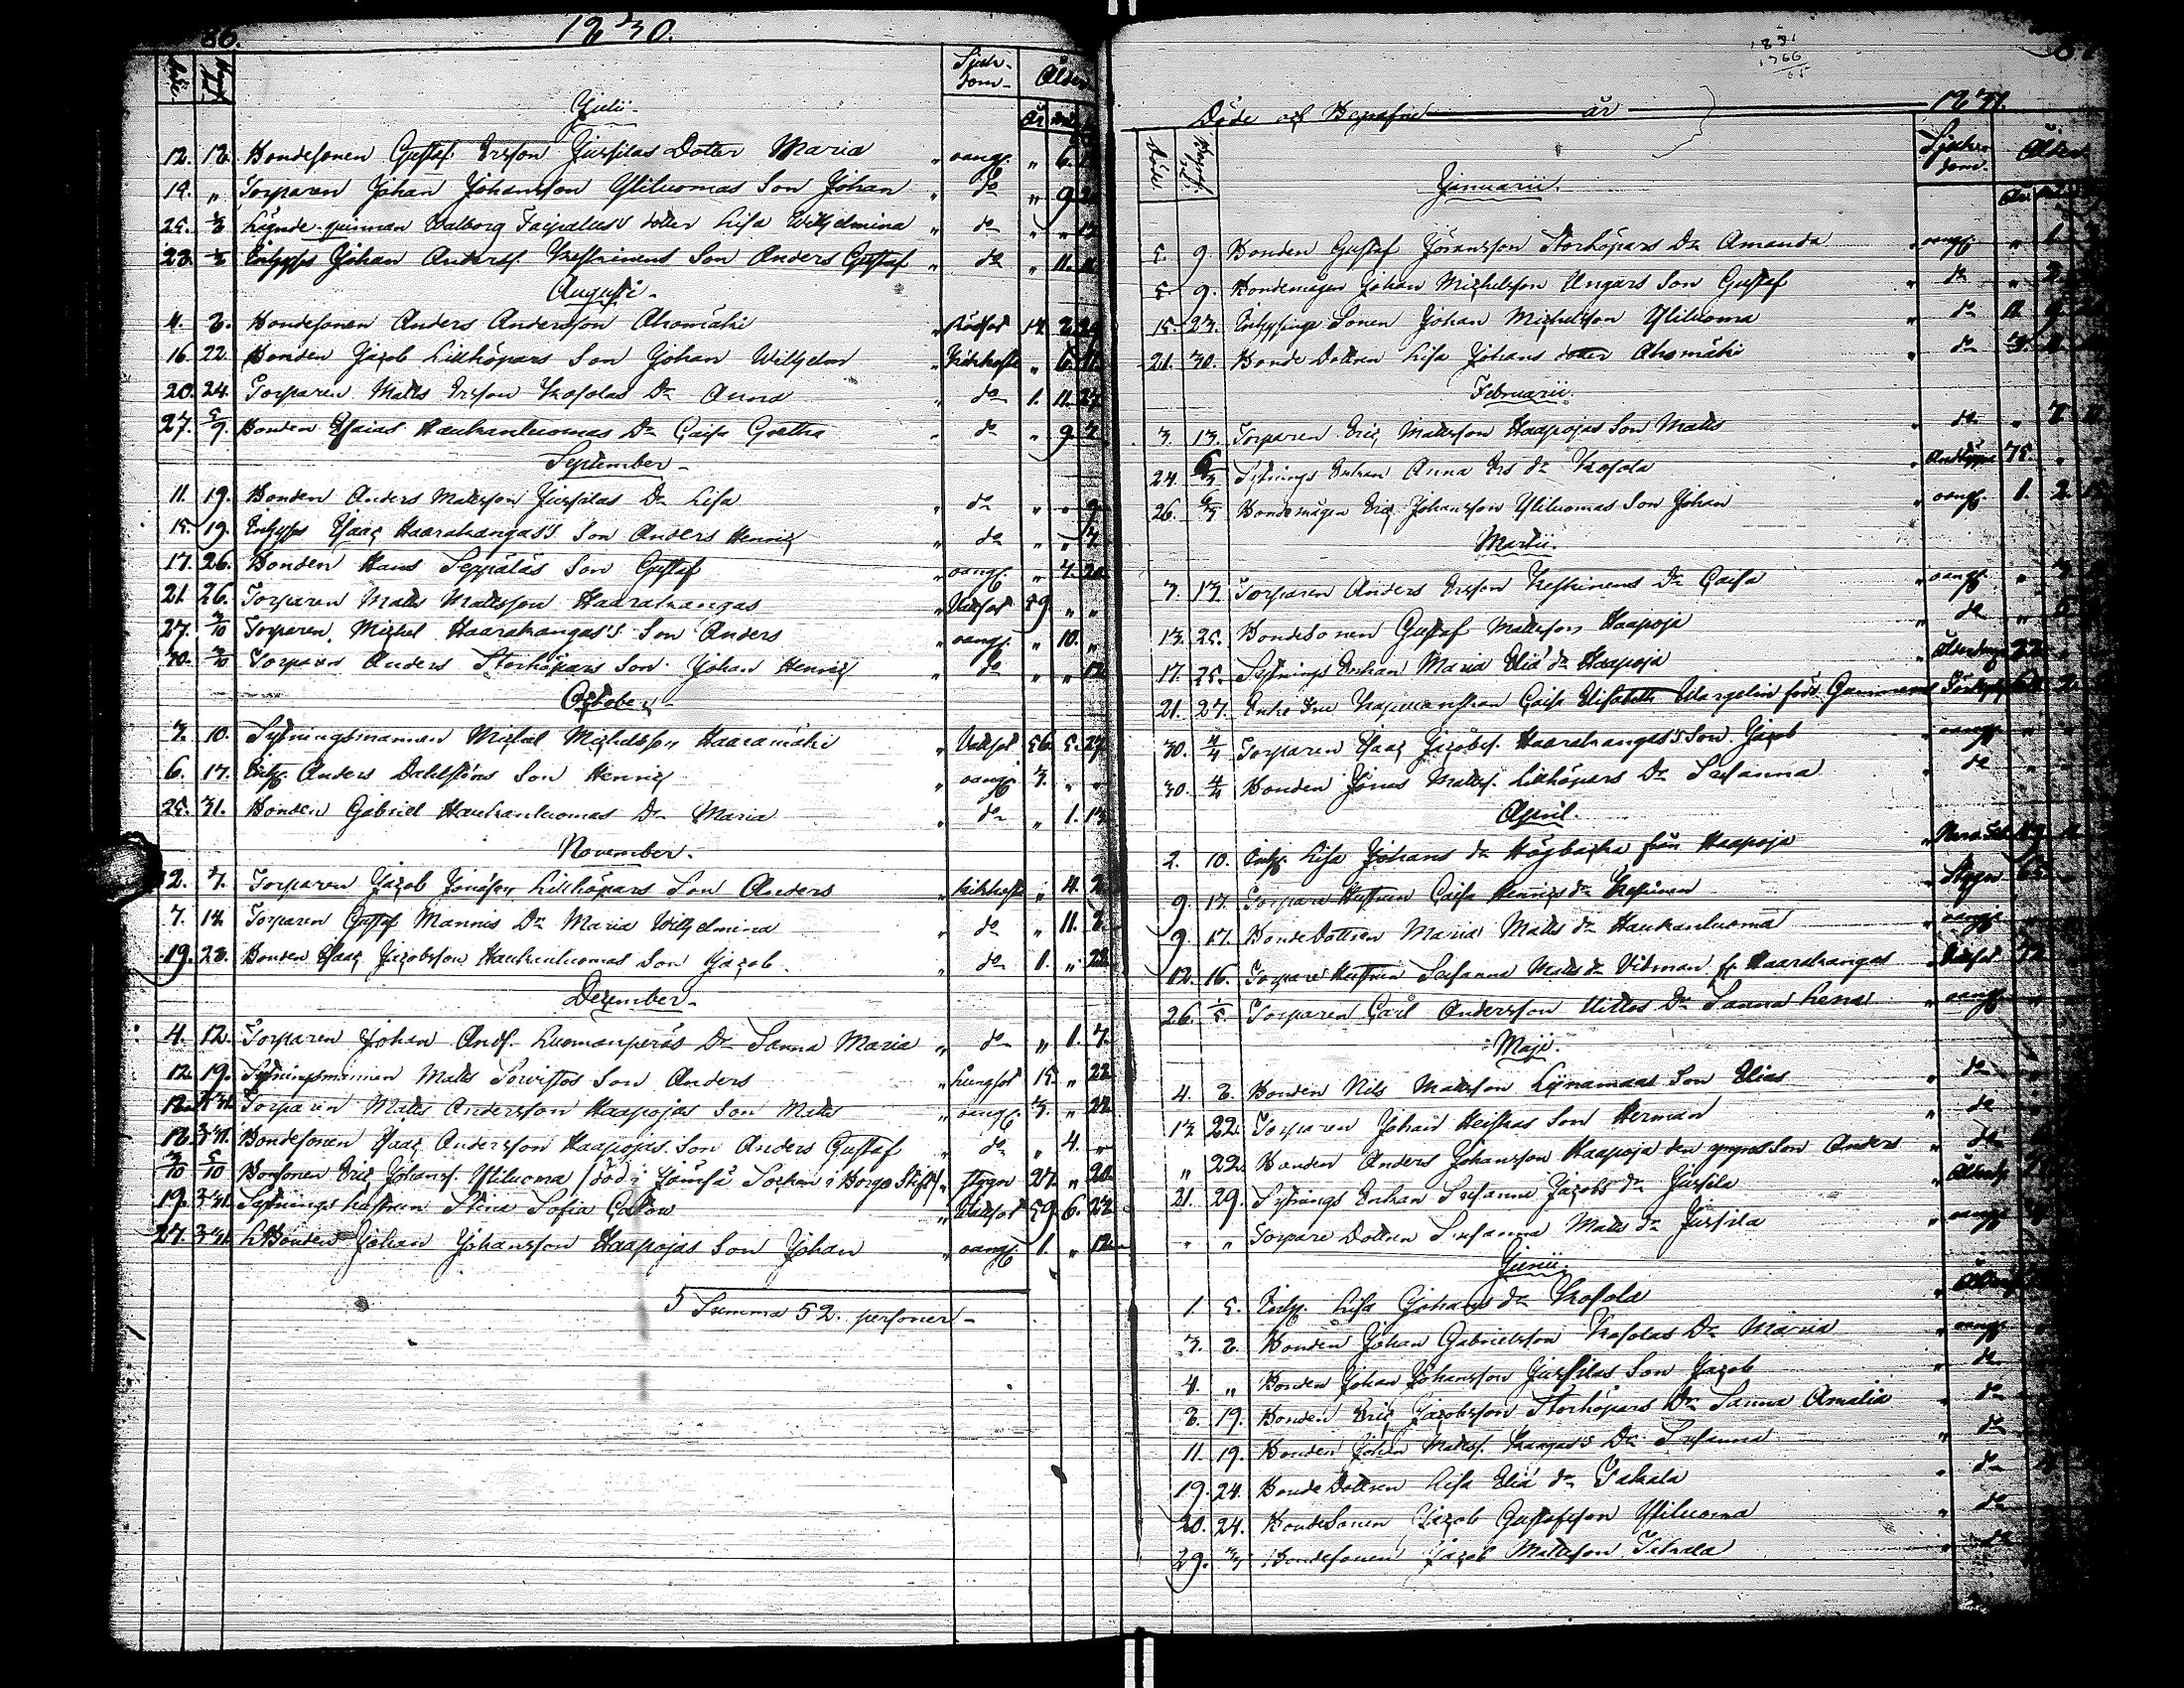 86.
1830.
Död. Begr.
Sjukdom Ålder
År
Julii
12. 18. Bondesonen Gustaf Ersson Jussilas Dotter Maria " oangf. " 6.
14. " Torparen Johan Johansson Yliluomas Son Johan " do " 9.
25. 1/8 Lägnde-quinnan Walborg Faipaluss dotter Lisa Wilhelmina " do " " 12
28. 1/8 Inhyses Johan Andersf. Keskinens Son Anders Gustaf " do " 11.
Augusti
4. 8. Bondesonen Anders Andersson Ahomäki " Rödsot 14. 8. 29
16. 22. Bonden Jacob Lillköpars Son Johan Wilhelm " Kikhosta " 6. 11.
20. 24. Torparen Matts Ersson Kosolas Dr Anna " do 1. 11. 27
27. 5/9. Bonden Esaias Haukanluomas Dr Caisa Gretha " do " 9. 3.
September
11. 19. Bonden Anders Mattsson Jussilas Dr Lisa " do " " 9.
15. 19. Inhyses Isaac Haarakangas's Son Anders Henric " do " " 7.
17. 26. Bonden Hans Seppäläs Son Gustaf " oangf. " 7. 20.
21. 26. Torparen Matts Mattsson Haarakangas " Vattsot 59. " "
27. 3/10 Torparen Michel Haarakangas's Son Anders " oangf. " 10. "
30. 3/10 Torparen Anders Storköpars Son Johan Henric " do " " 12
October
3. 10. Sytningsmannen Michel Michelsson Haaramäki " Vattsot 56. 5. 27
6. 17. Inhs. Anders Dahlströms Son Henric " oangf. 3. " "
25. 31. Bonden Gabriel Haukanluomas Dr Maria " do " 1. 13.
November.
2. 7. Torparen Jacob Jonasson Lillköpars Son Anders " kikhosta " 4. 2
7. 14. Torparen Gustaf Mannis Dr Maria Wilhelmina " do " 11. 2.
19. 28. Bonden Isaac Jacobsson Haukanluomas Son Jacob " do 1. " 28.
December
4. 12. Torparen Johan Andf. Luomanperäs Dr Sanna Maria " do " 1. 7.
12. 19. Sytningsmannen Matts Sorvistos Son Anders " Lungsot 15. " 22.
Torparen Matts Andersson Haapojas Son Matts " oangf. 3. " 24
Bondesonen Isaac Andersson Haapojas Son Anders Gustaf " do " 4. "
3/10 5/10 Bondsonen Eric Johansf. Yliluoma /död i Jämsä Sochn i Borgo Stift/ " Stygn 27. " 20.
19. Sytnings hustrun Stina Sofia " Vattsot 59. 6. 27
27. Bonden Johan Johansson Haapojas Son Johan " oangf. 1. " 12
Summa 52. personer
1831
1766
65
87
Döde och Begrafne år 1831.
Döde. Begraf.
Sjukdom. Ålder
Januarii.
5. 9. Bonden Gustaf Jöransson Storköpars Dr Amanda " oangf.
5. 9. Bondemågen Johan Michelsson Ungars Son Gustaf " do
15. 23. Inhysinge Sonen Johan Michelsson Yliluoma " do
21. 30. Bonde Dottren Lisa Johans dotter Ahomäki " do
Februarii.
3. 13. Torparen Eric Mattsson Haapojas Son Matts " do
24. 6/3 Sytnings Enkan Anna Ers dr Kosola " 75.
26. 6/3 Bondemågen Eric Johansson Yliluomas Son Johan " oangf. 1. 2.
Martii.
3. 13. Torparen Anders Ersson Keskinens Dr Caisa " oangf.
13. 25. Bondesonen Gustaf Mattsson Haapoja " do
17. 25. Sytnings Enkan Maria Eliæ dr Haapoja "
21. 27. Enke Fru Kapellanskan Caisa Elisabeth Wargelin född Gummerus
30. 4/4 Torparen Isaac Jacobsf. Haarakangas's Son Jacob " oangf.
30. 4/4 Bonden Jonas Mattsf. Lillköpars Dr Susanna " do
April.
2. 10. Inhs. Lisa Johans dr Högbacka från Haapoja
9. 17. Torpare Hustrun Caisa Henrics dr Keskinen " Stygn
9. 17. Bonde Dottren Maria Matts dr Haukanluoma " oangf.
12. 16. Torpare Hustrun Susanna Matts dr Vidman fr. Haarakangas " Vattsot
26. 1/5. Torparen Carl Andersson Uittos Dr Sanna Lena " oangf.
Maji.
4. 8. Bonden Nils Mattsson Lijnamaas Son Elias " do
13. 22. Torparen Johan Heiskas Son Herman " do
" 22. Bonden Anders Johansson Haapoja den yngres Son Anders " do
21. 29. Sytnings Enkan Susanna Jacobs dr Jussila "
" " Torpare Dottren Susanna Matts dr Jussila " oangf.
Junii.
1 5. Inhs. Lisa Johans dr Kosola "
3. 8. Bonden Johan Gabrielsson Kosolas Dr Maria " oangf.
4. " Bonden Johan Johansson Jussilas Son Jacob " do
8. 19. Bonden Eric Jacobsson Storköpars Dr Sanna Amalia " do
11. 19. Bonden Johan Mattsf. Kangas's Dr Susanna " do
19. 24. Bonde Dottren Lisa Eliæ dr Takala " do
20. 24. Bondesonen Jacob Gustafsson Yliluoma " do
29. Bondesonen Jacob Mattsson Takala " do